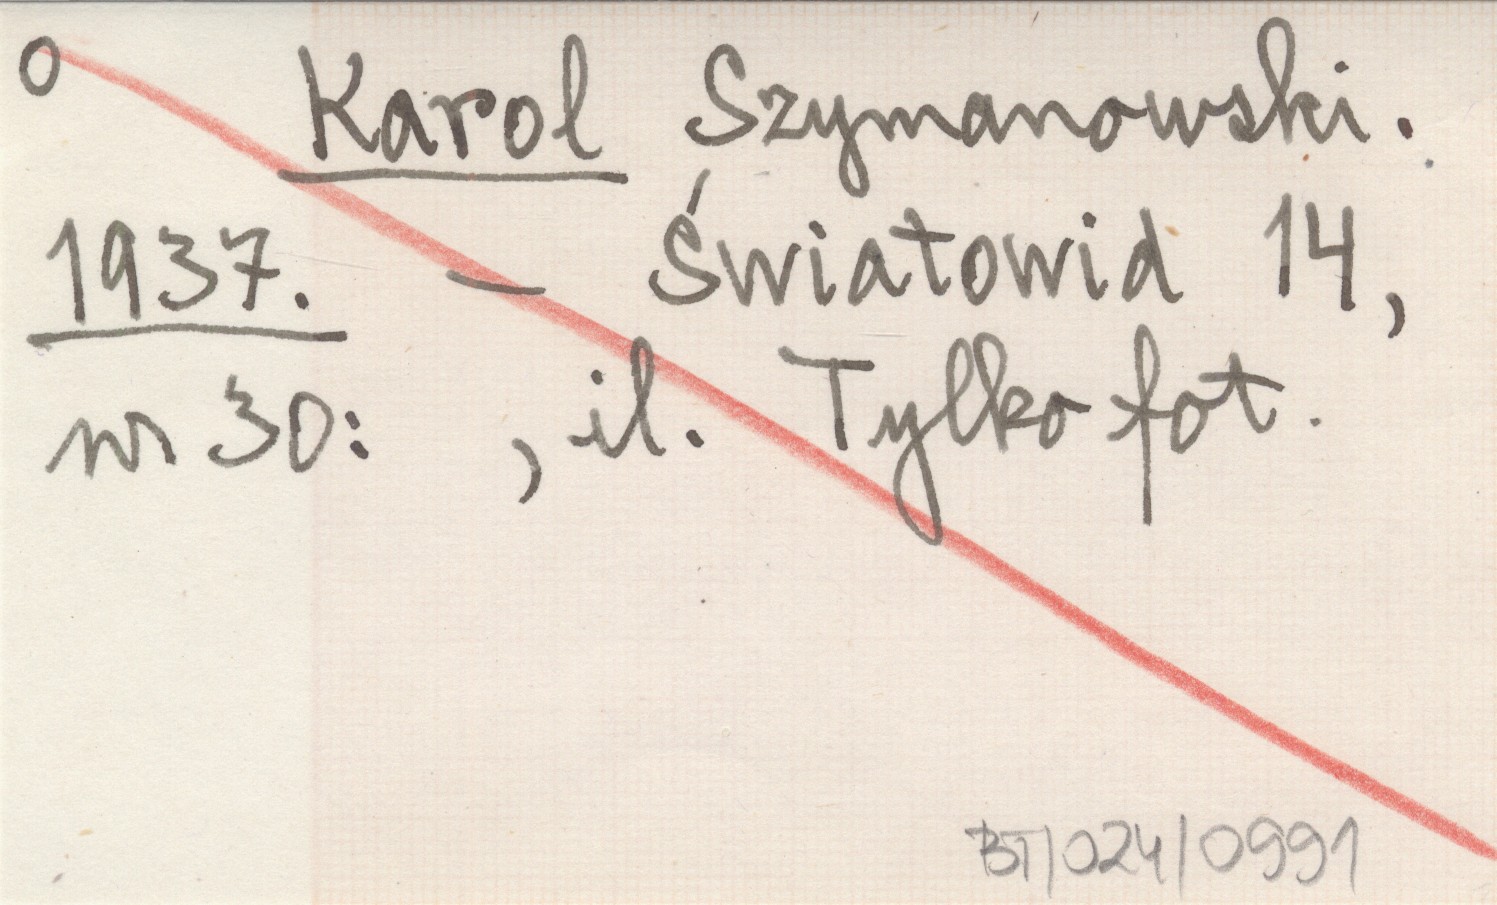 O Karol Szymanowski.
1937. – Światowid 14,
nr 30: , il. Tylko fot.
BT/024/0991